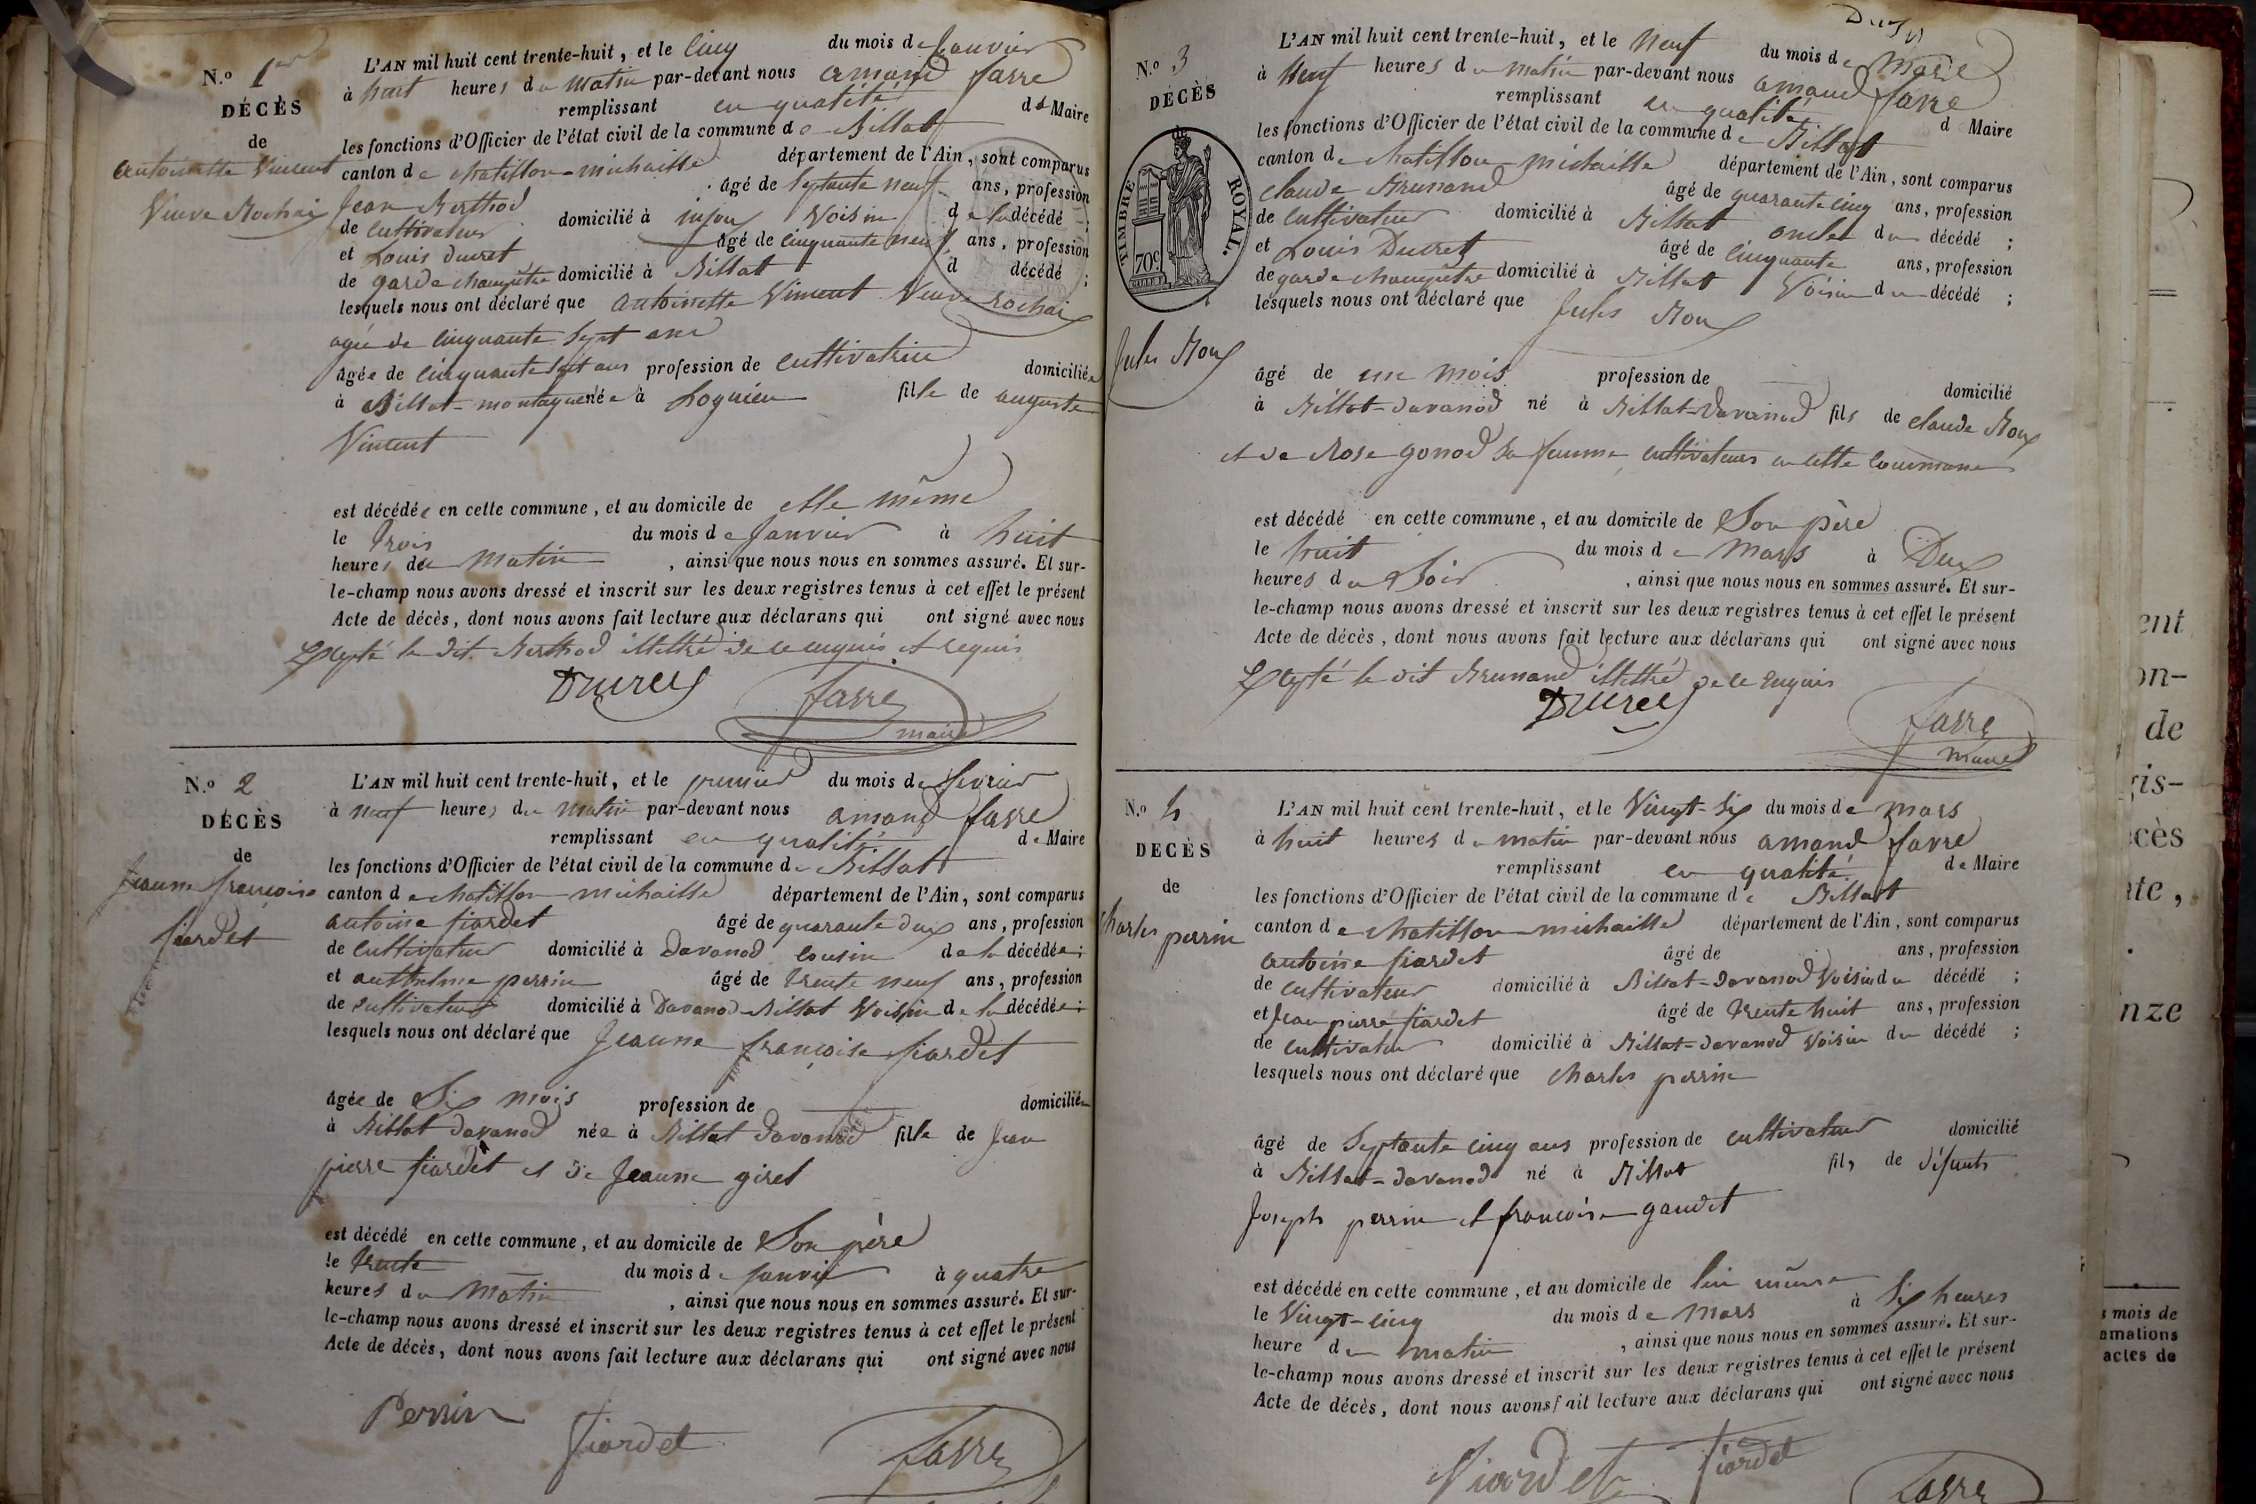 N.o 1er
DÉCÈS
de
antoinette Vincent
Veuve Rochaix
L'AN mil huit cent trente-huit, et le cinq du mois de Janvier
à huit heures du matin par-devant nous amand favre
remplissant en qualité de Maire
les fonctions d'Officier de l'état civil de la commune de Billiat
canton de chatillon-michaille département de l'Ain, sont comparus
Jean Berthod âgé de septante neuf ans, profession
de cultivateur domicilié à injoux Voisin de la décédé ;
et Louis Ducret âgé de cinquante neuf ans, profession
de garde champêtre domicilié à Billiat d décédé ;
lesquels nous ont déclaré que antoinette Vincent Veuve rochaix
agée de cinquante sept ans
âgée de cinquante sept ans profession de cultivatrice domiciliée
à Billiat-montagne née à Lognieu fille de auguste
Vincent
est décédée en cette commune, et au domicile de elle même
le trois du mois de Janvier à huit
heures du matin , ainsi que nous nous en sommes assuré. Et sur-
le-champ nous avons dressé et inscrit sur les deux registres tenus à cet effet le présent
Acte de décès, dont nous avons fait lecture aux déclarans qui ont signé avec nous
Excepté le dit Berthod illettré de ce enquis et requis
Ducret favre
maire
N.o 2
DÉCÈS
de
Jeanne françoise
fiardet
L'AN mil huit cent trente-huit, et le premier du mois de fevrier
à neuf heures du matin par-devant nous amand favre
remplissant en qualité de Maire
les fonctions d'Officier de l'état civil de la commune de Billiat
canton de chatillon-michaille département de l'Ain, sont comparus
antoine fiardet âgé de quarante deux ans, profession
de cultivateur domicilié à Davanod cousin de la décédée ;
et anthelme perrin âgé de trente neuf ans, profession
de cultivateur domicilié à Davanod-Billiat Voisin de la décédée ;
lesquels nous ont déclaré que Jeanne françoise fiardet
âgée de Six mois profession de domiciliée
à Billiat davanod née à Billiat davanod fille de Jean
pierre fiardet et de Jeanne giret
est décédé en cette commune, et au domicile de Son père
le trente du mois de janvier à quatre
heures du Matin , ainsi que nous nous en sommes assuré. Et sur-
le-champ nous avons dressé et inscrit sur les deux registres tenus à cet effet le présent
Acte de décès, dont nous avons fait lecture aux déclarans qui ont signé avec nous
Perrin fiardet favre
N.o 3
DÉCÈS
de
TIMBRE ROYAL.
70c
Jules Roux
L'AN mil huit cent trente-huit, et le neuf du mois de Mars
à Neuf heures du matin par-devant nous amand favre
remplissant en qualité d Maire
les fonctions d'Officier de l'état civil de la commune de Billiat
canton de chatillon-michaille département de l'Ain, sont comparus
claude Brunand âgé de quarante cinq ans, profession
de cultivateur domicilié à Billiat oncle du décédé ;
et Louis Ducret âgé de cinquante ans, profession
de garde champêtre domicilié à Billiat Voisin du décédé ;
lesquels nous ont déclaré que Jules Roux
âgé de un mois profession de domicilié
à Billiat-davanod né à Billiat-Davanod fils de claude Roux
et de Rose gonod sa femme cultivateurs en cette commune
est décédé en cette commune, et au domicile de Son père
le huit du mois de Mars à Deux
heures du Soir , ainsi que nous nous en sommes assuré. Et sur-
le-champ nous avons dressé et inscrit sur les deux registres tenus à cet effet le présent
Acte de décès, dont nous avons fait lecture aux déclarans qui ont signé avec nous
Excepté le dit Brunand illettré de ce Enquis
Ducret favre
maire
N.o 4
DECÈS
de
Charles perrin
L'AN mil huit cent trente-huit, et le Vingt-Six du mois de mars
à huit heures du matin par-devant nous amand favre
remplissant en qualité de Maire
les fonctions d'Officier de l'état civil de la commune de Billiat
canton de chatillon-michaille département de l'Ain, sont comparus
antoine fiardet âgé de ans, profession
de cultivateur domicilié à Billiat-davanod Voisin du décédé ;
et Jean pierre fiardet âgé de trente huit ans, profession
de cultivateur domicilié à Billiat-davanod Voisin du décédé ;
lesquels nous ont déclaré que charles perrin
âgé de Septante cinq ans profession de cultivateur domicilié
à Billiat-davanod né à Billiat fils de défunts
Joseph perrin et françoise gaudet
est décédé en cette commune, et au domicile de lui même
le Vingt-cinq du mois de mars à Six heures
heure du matin , ainsi que nous nous en sommes assuré. Et sur-
le-champ nous avons dressé et inscrit sur les deux registres tenus à cet effet le présent
Acte de décès, dont nous avons fait lecture aux déclarans qui ont signé avec nous
fiardet fiardet
favre
ent
on-
de
gis-
cès
te,
nze
mois de
amations
actes de